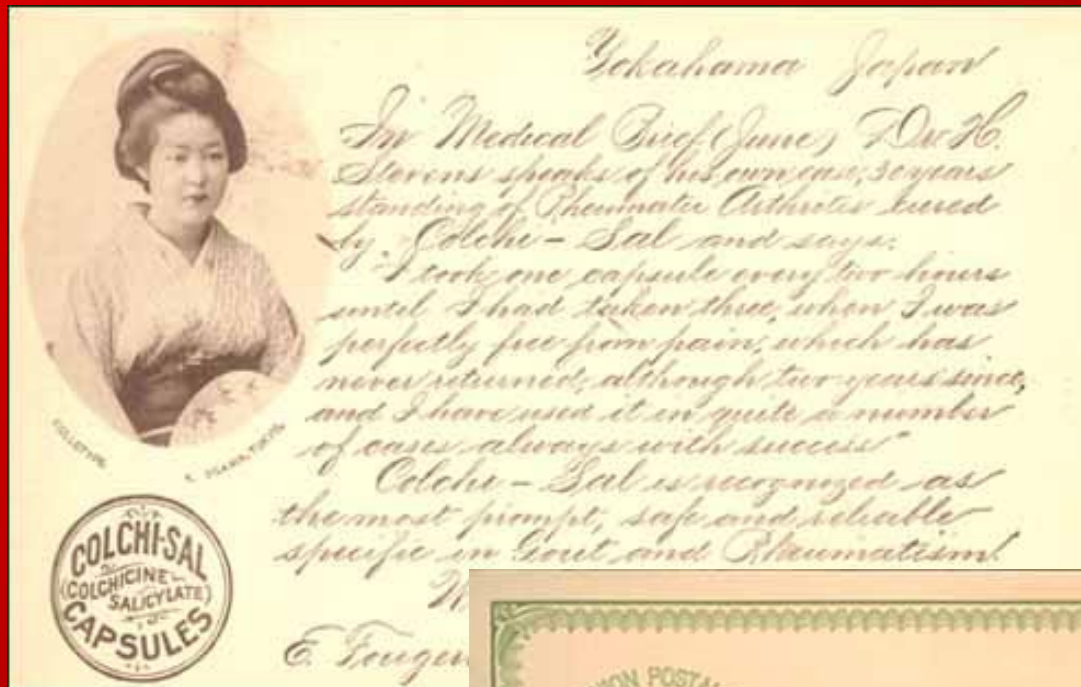 Yokahama Japan
In Medical Brief (June) Dr. H.
Stevens speaks of his own case, 30 years
standing of Rheumatic Arthritis cured
by Colchi-Sal and says:
"I took one capsule every two hours
until I had taken three, when I was
perfectly free from pain, which has
never returned, although two years since,
and I have used it in quite a number
of cases always with success"
Colchi-Sal is recognized as
the most prompt, safe and reliable
specific in Gout and Rheumatism!
E. Fouger
COLLOTYPE
K. OGAWA, TOKYO
COLCHI-SAL
(COLCHICINE
SALICYLATE)
CAPSULES
ON POSTA